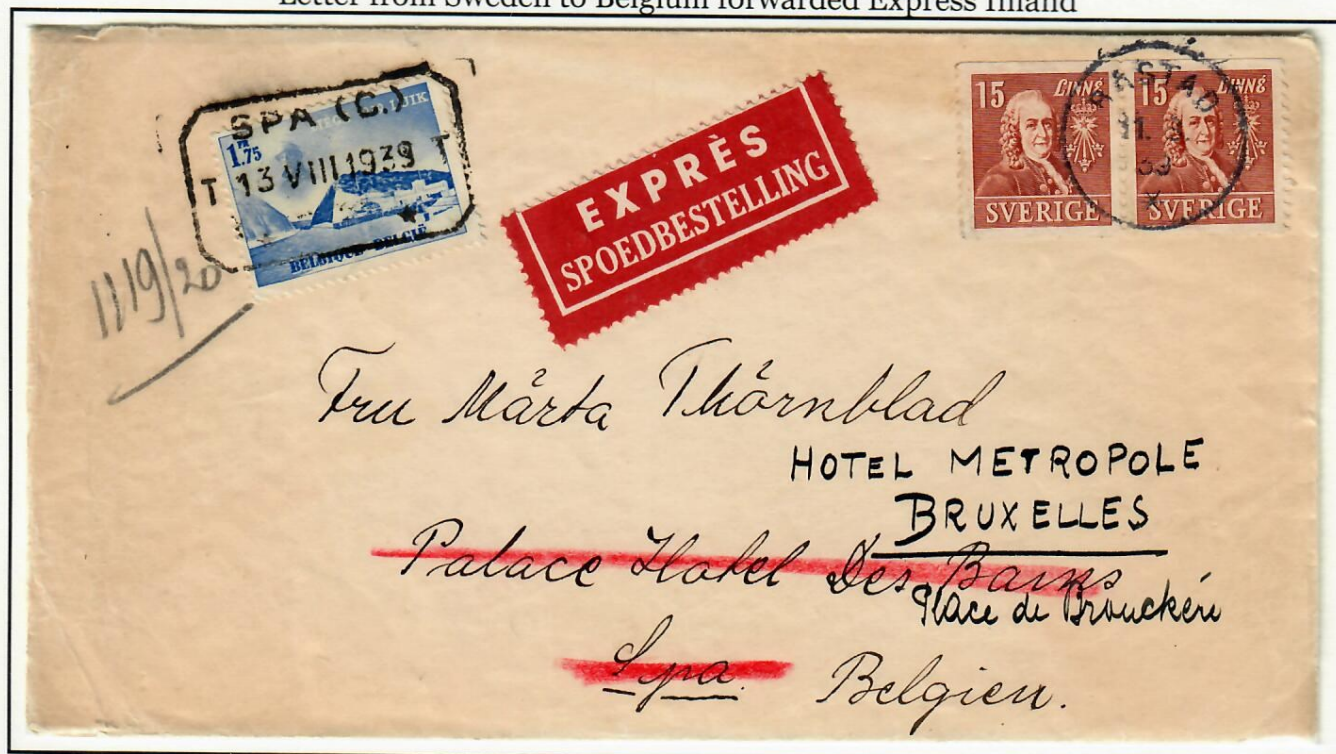 Letter from Sweden to Belgium forwarded Express Inland
SPA (C.)
T 13 VIII 1939 T
LUIK
1.75
BELGIQUE-BELGIË
1119/20
EXPRÈS
SPOEDBESTELLING
15 LINNÉ
SVERIGE
15 LINNÉ
SVERIGE
Fru Märta Thörnblad
HOTEL METROPOLE
BRUXELLES
Palace Hotel Des Bains
Place de Brouckère
Spa.
Belgien.